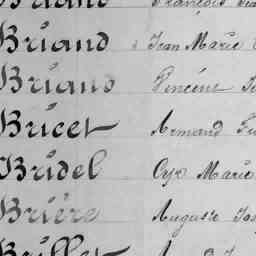 Briand François
Briand Jean Marie
Briand Vincent
Bricet Armand
Bridel Cyr Marie
Brière Auguste
Brillet